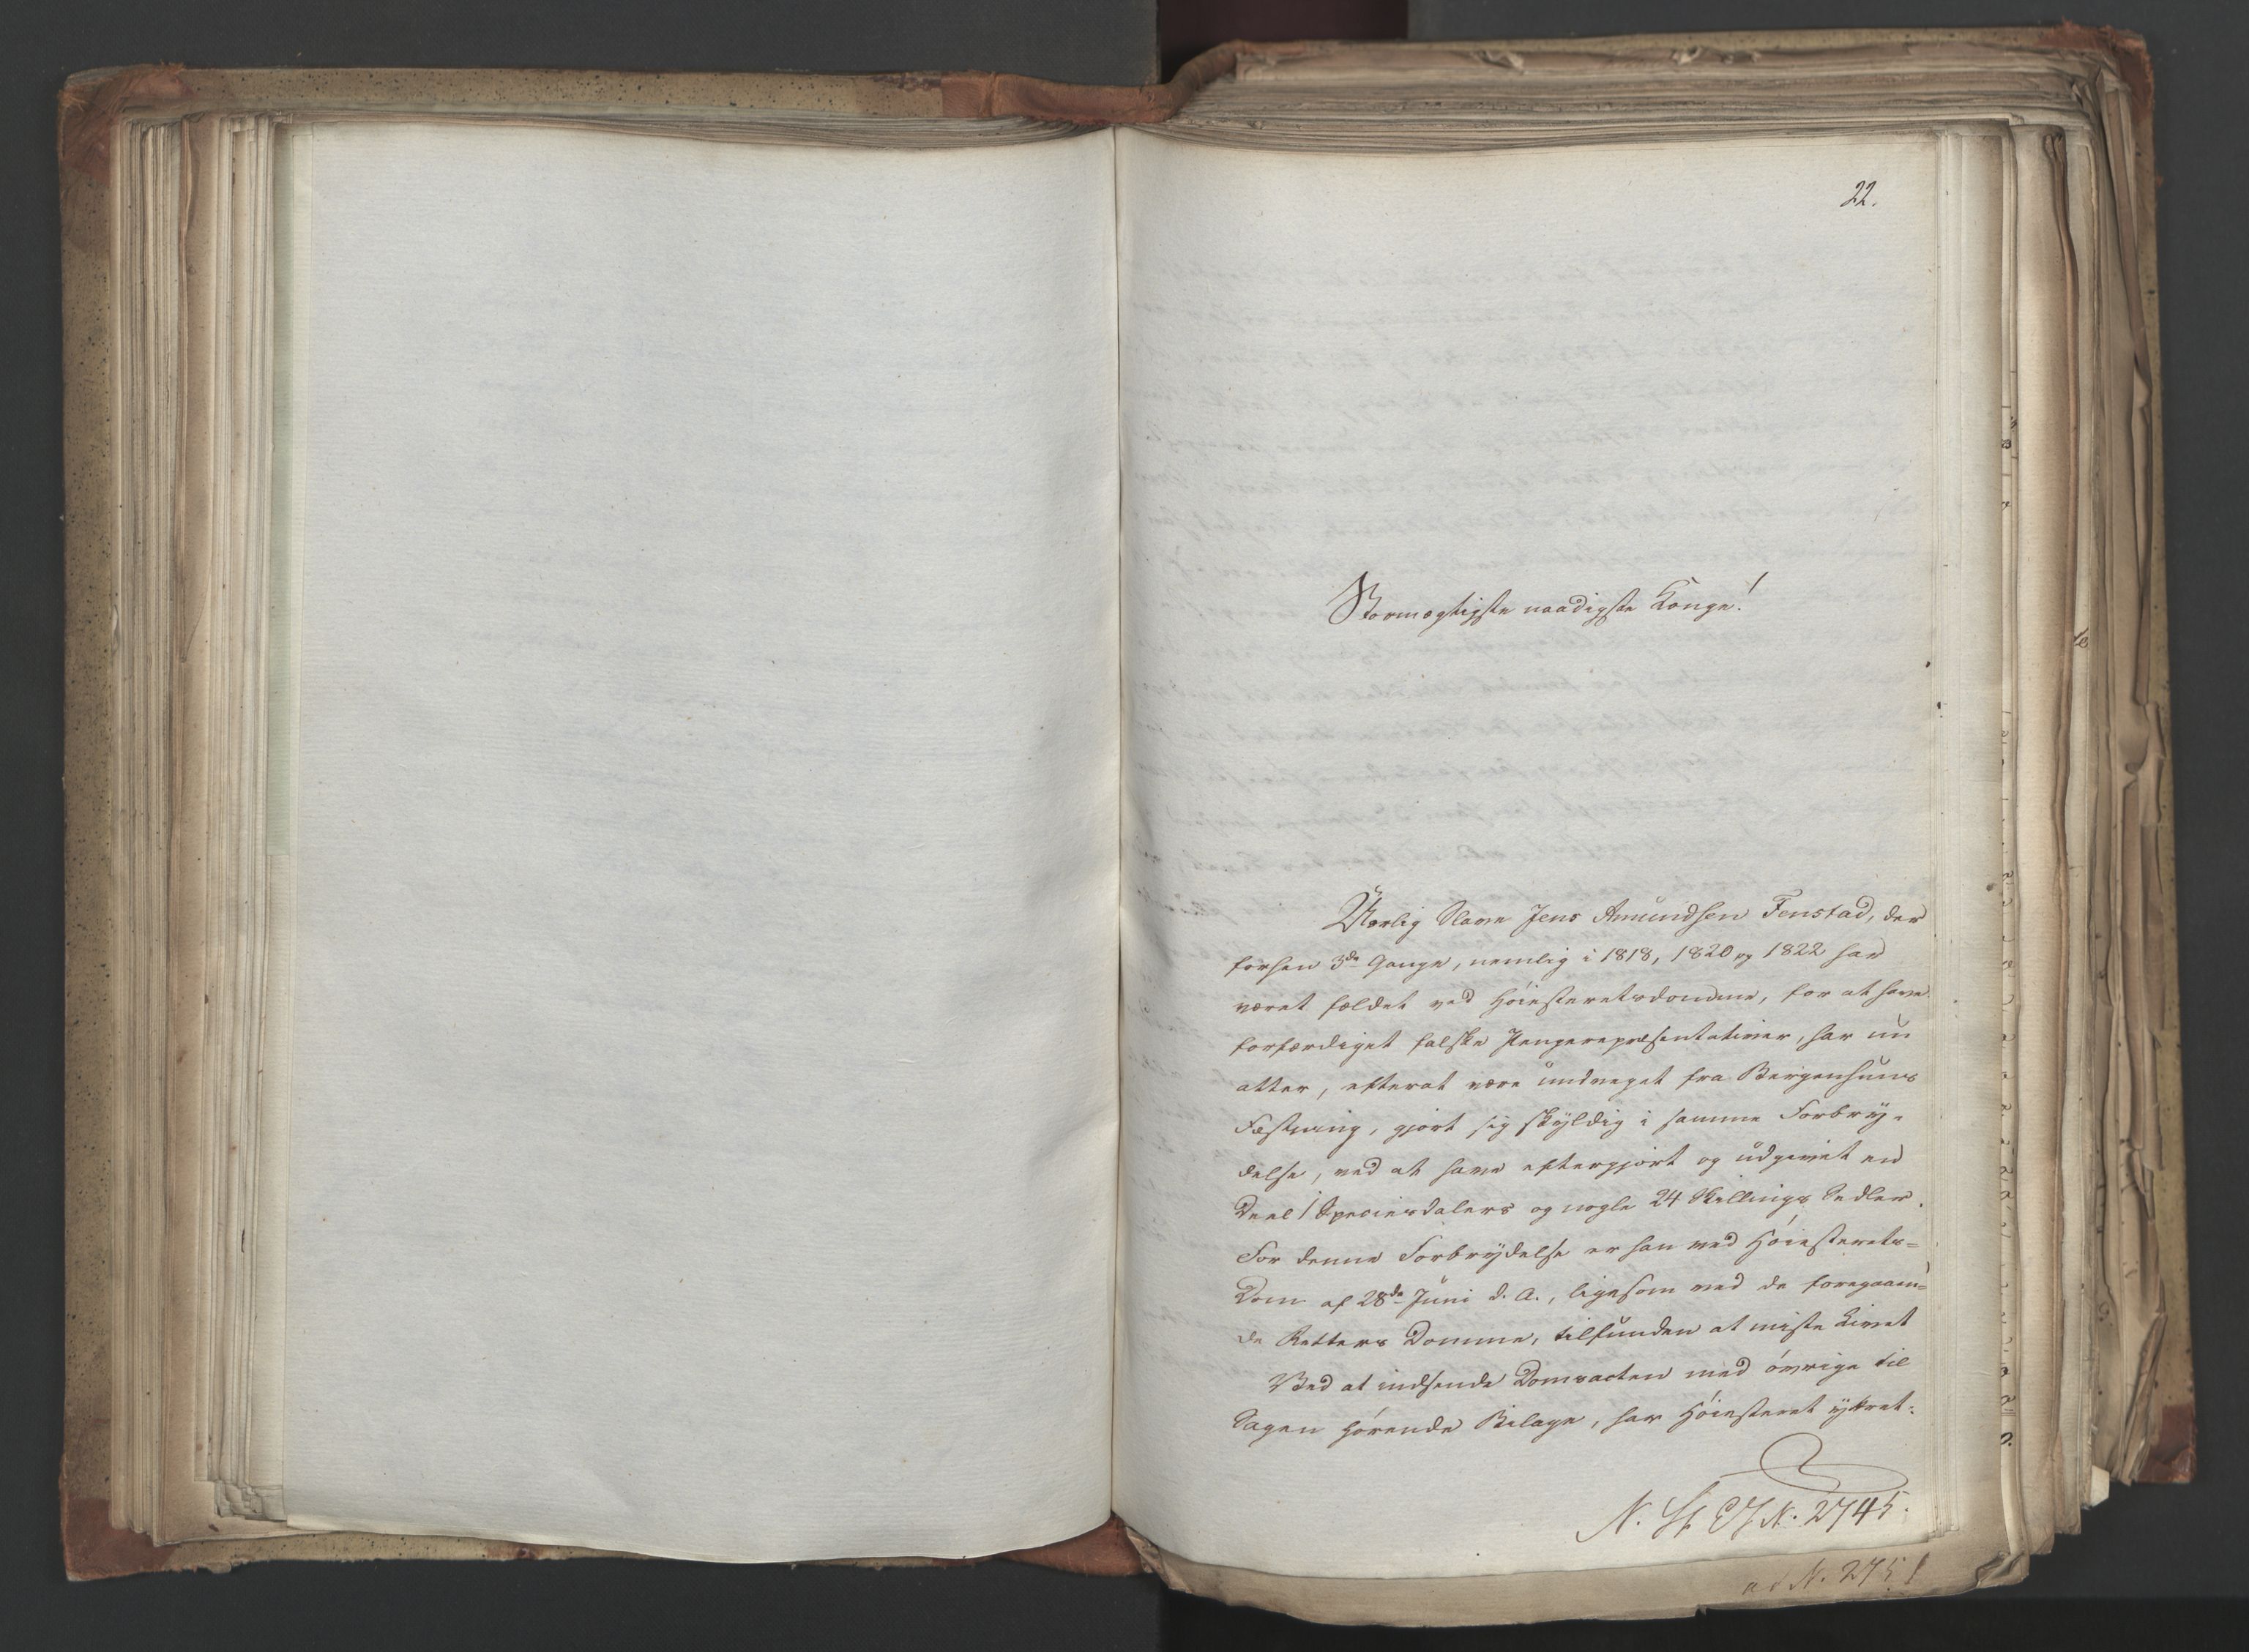 22.
Stormægtigste naadigste Konge!
Uærlig Slave Jens Amundsen Fenstad, der
forhen 3de Gange, nemlig i 1818, 1820 og 1822 har
været fældet ved Höiesteretsdomme, for at have
forfærdiget falske Pengerepræsentativer, har nu
atter, efterat være undveget fra Bergenhuus
Fæstning, gjort sig skyldig i samme Forbry-
delse, ved at have eftergjort og udgivet en
Deel 1 Speciesdalers og nogle 24 Skillings Sedler.
For denne Forbrydelse er han ved Höiesterets-
Dom af 28de Juni d. A., ligesom ved de foregaaen-
de Retters Domme, tilfunden at miste Livet
Ved at indsende Domsacten med övrige til
Sagen hörende Bilage, har Höiesteret yttret:
N. St. E J N. 2745.
ad N. 2751